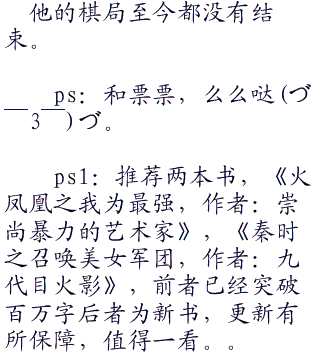 他的棋局至今都没有结
束。
ps：和票票，么么哒(づ
￣ 3￣)づ。
ps1：推荐两本书，《火
凤凰之我为最强，作者：崇
尚暴力的艺术家》，《秦时
之召唤美女军团，作者：九
代目火影》，前者已经突破
百万字后者为新书，更新有
所保障，值得一看。。